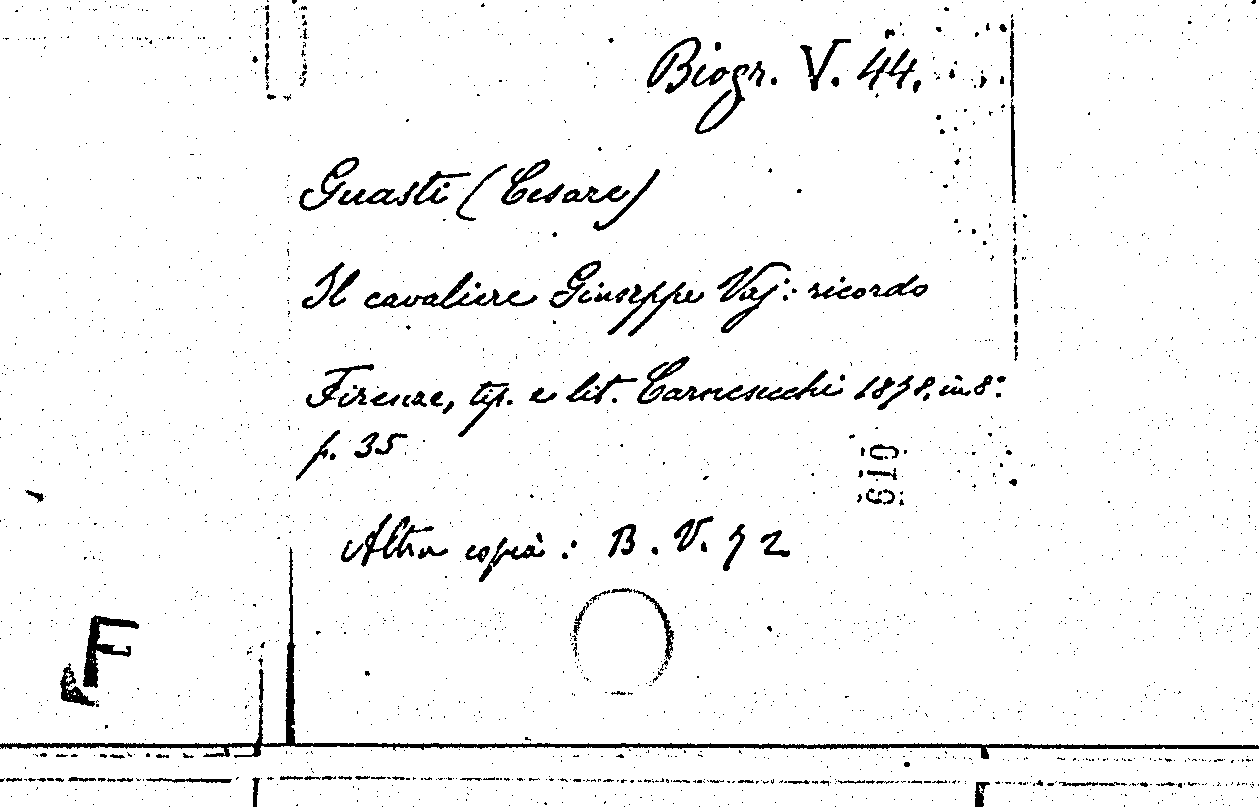 Biogr. V. 44.
Guasti (Cesare)
Il cavaliere Giuseppe Vaj: ricordo
Firenze, tip. e lit. Carnesecchi 1878, in 8°
p. 35
619
Altra copia: B. V. 72
F